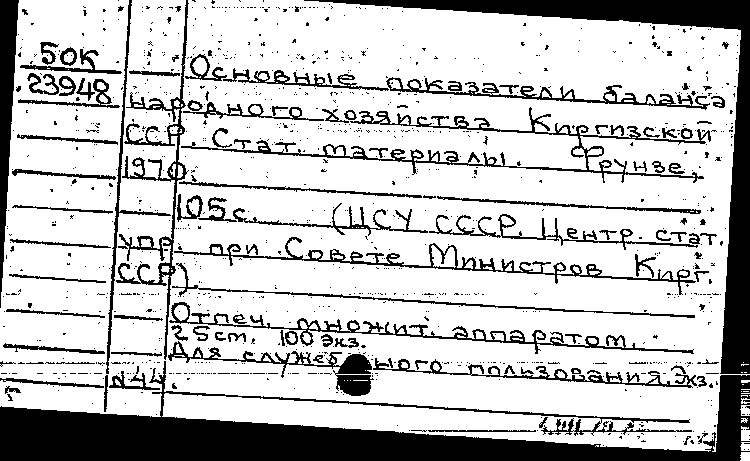 50К
23948
Основные показатели баланса
народного хозяйства Киргизской
ССР. Стат. материалы. Фрунзе,
1970.
105с. (ЦСУ СССР. Центр. стат.
упр. при Совете Министров Кирг.
ССР).
Отпеч. множит. аппаратом.
25cm. 100 экз.
Для служебного пользования. Экз.
N44.